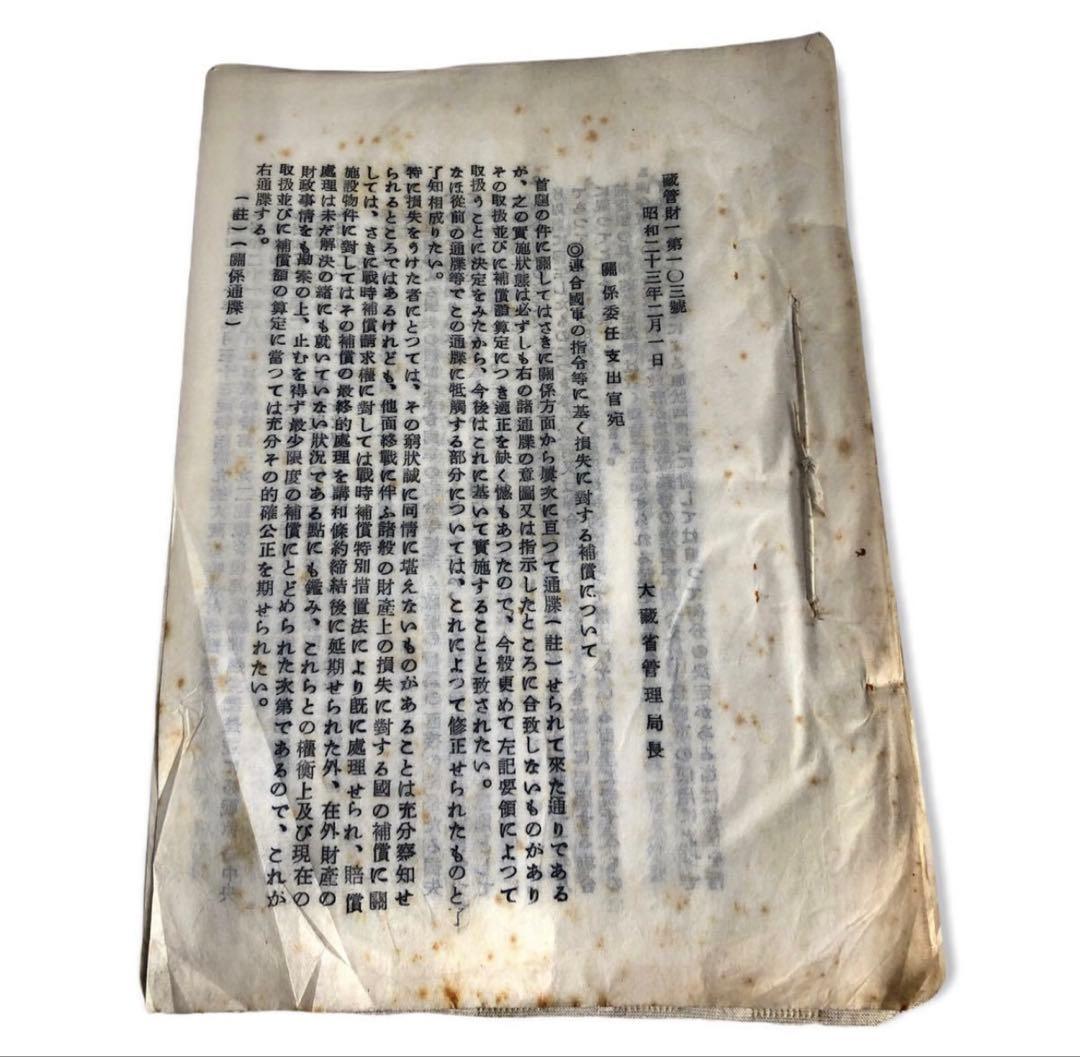 藏管財一第一〇三號
昭和二十三年二月一日
大藏省管理局長
關係委任支出官宛
◎連合國軍の指令等に基く損失に對する補償について
首題の件に關してはさきに關係方面から屢次に亘つて通牒(註)せられて來た通りである
が、之の實施狀態は必ずしも右の諸通牒の意圖又は指示したところに合致しないものがあり
その取扱並びに補償額算定につき適正を缺く憾もあつたので、今般更めて左記要領によつて
取扱うことに決定をみたから、今後はこれに基いて實施することと致されたい。
なほ從前の通牒等でこの通牒に牴觸する部分については、これによつて修正せられたものと了
了知相成りたい。
特に損失をうけた者にとつては、その窮狀誠に同情に堪えないものがあることは充分察知せ
られるところではあるけれども、他面終戰に伴ふ諸般の財產上の損失に對する國の補償に關
しては、さきに戰時補償請求權に對しては戰時補償特別措置法により旣に處理せられ、賠償
施設物件に對してはその補償の最終的處理を講和條約締結後に延期せられた外、在外財產の
處理は未だ解決の緖にも就いていない狀況である點にも鑑み、これらとの權衡上及び現在の
財政事情をも勘案の上、止むを得ず最少限度の補償にとどめられた次第であるので、これが
取扱並びに補償額の算定に當つては充分その的確公正を期せられたい。
右通牒する。
(註)(關係通牒)